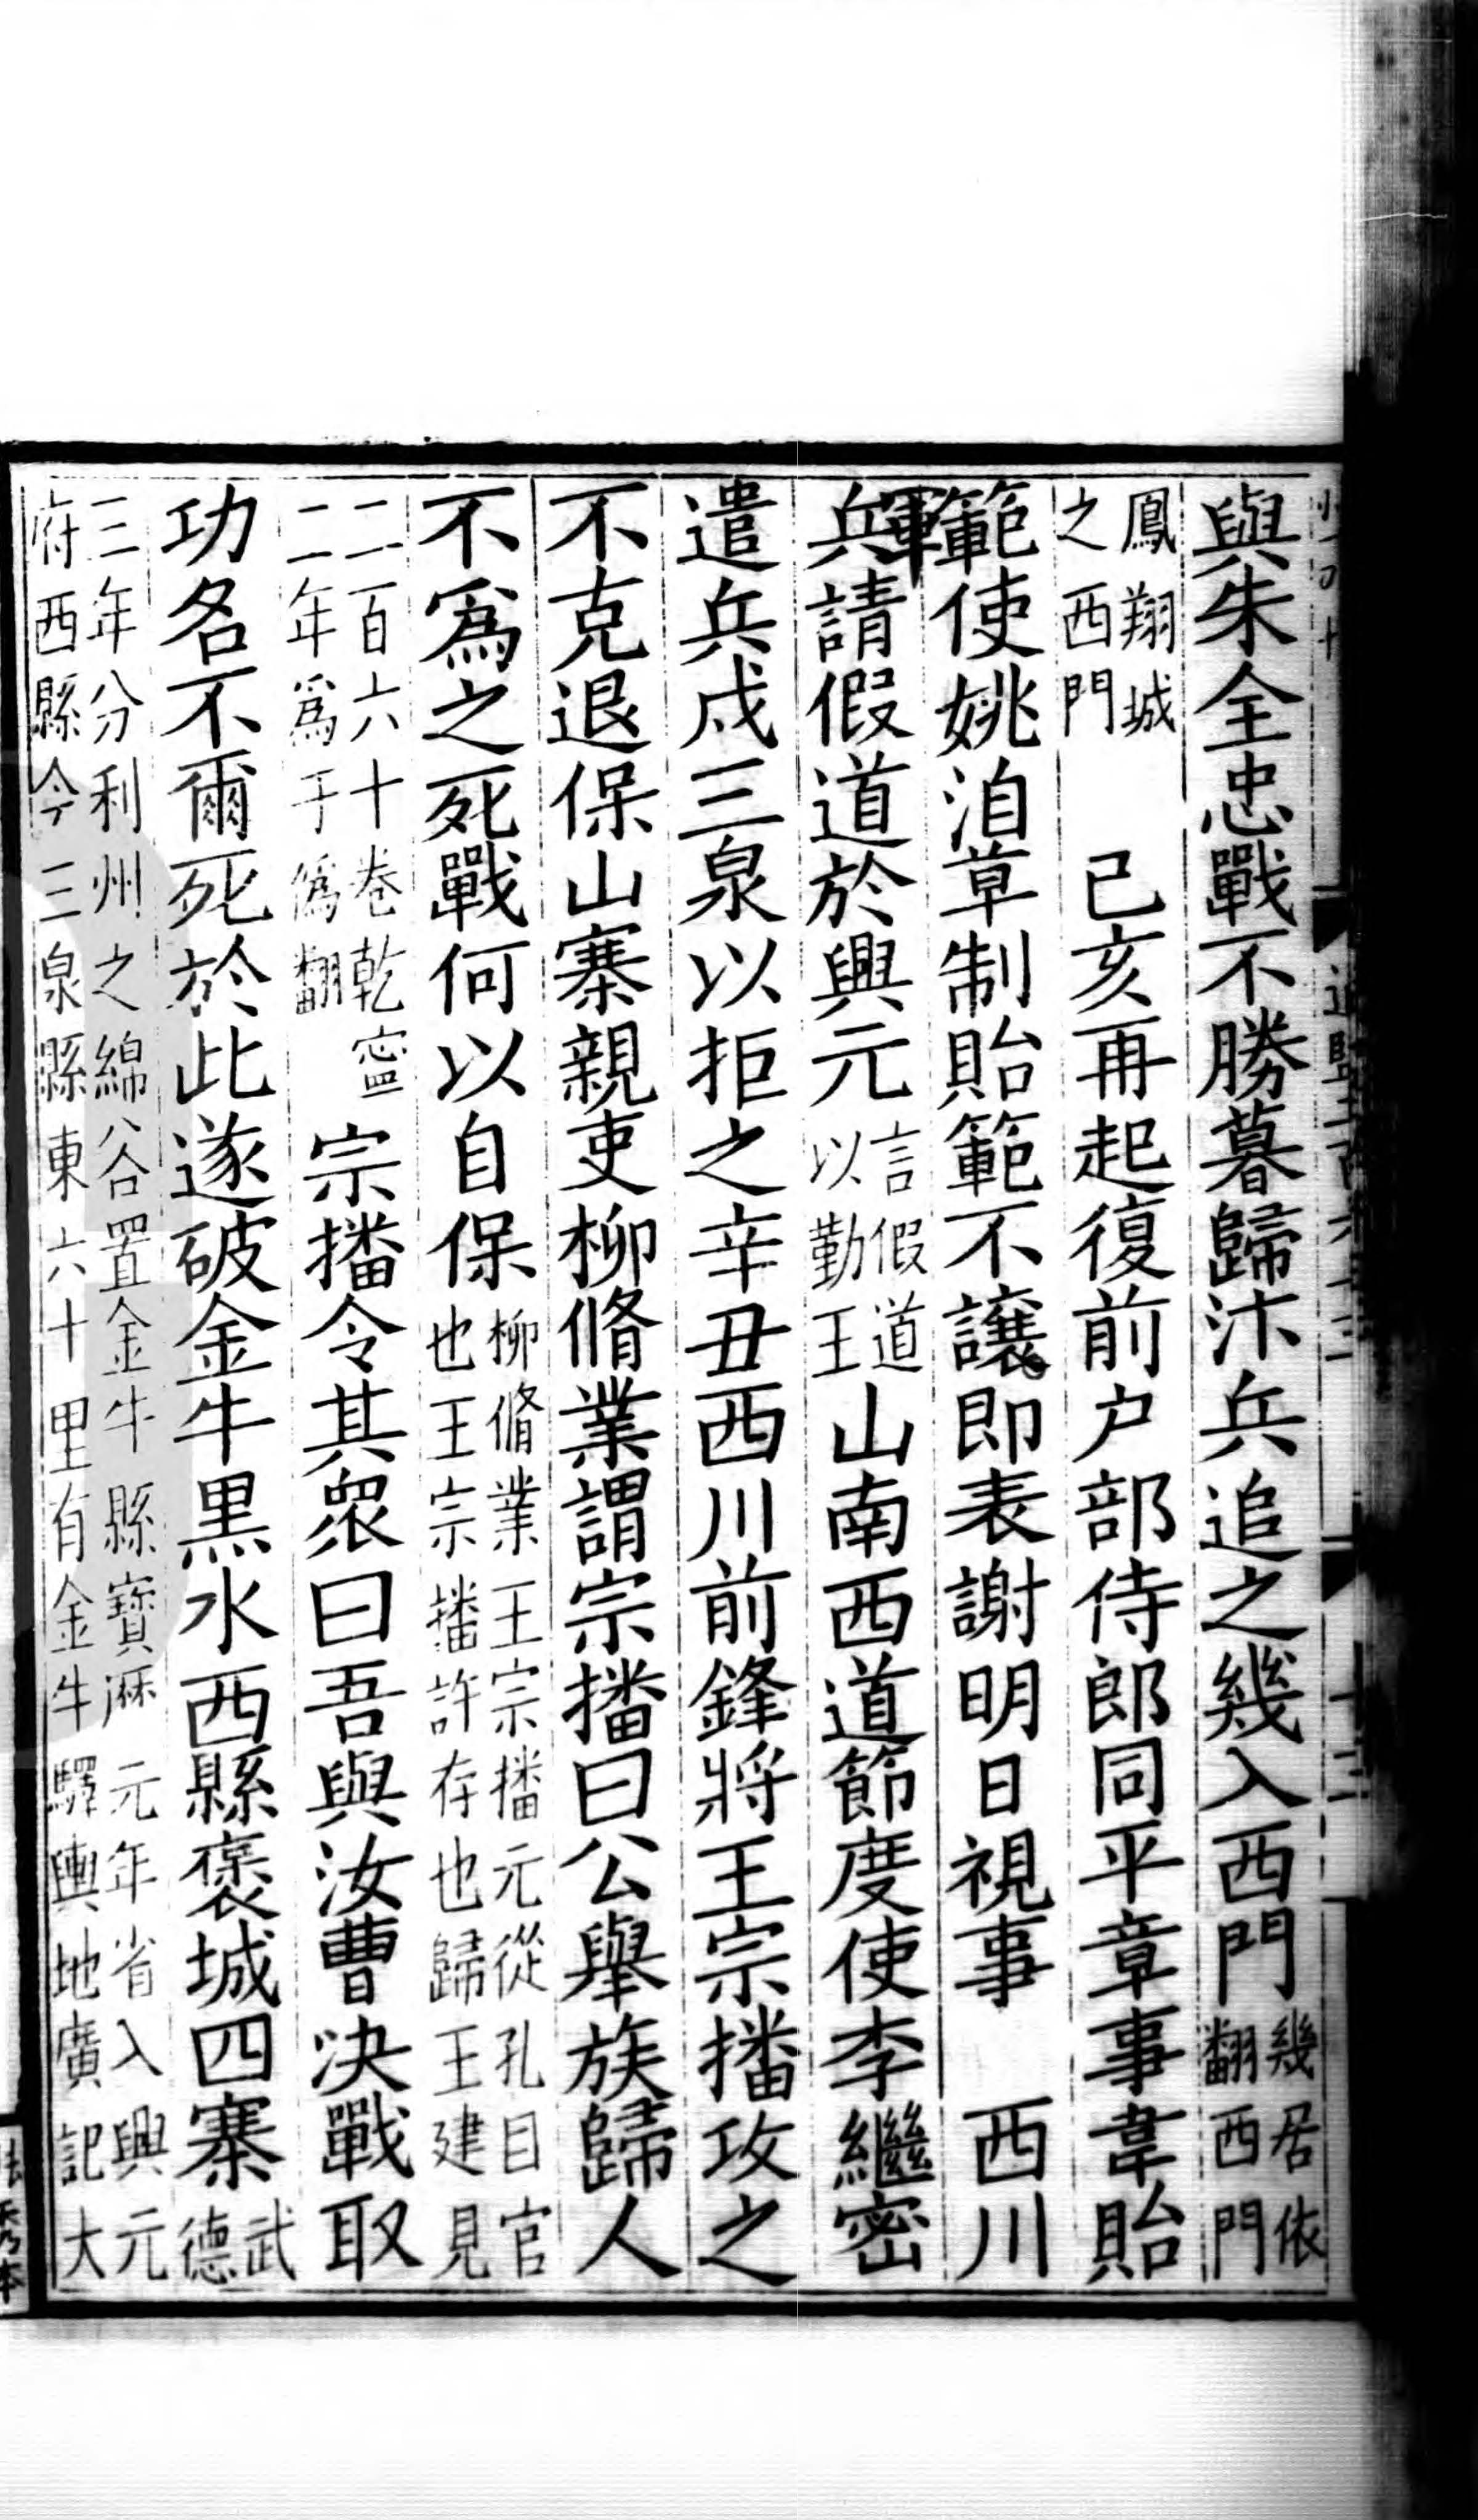 與朱全忠戰不勝暮歸汴兵追之幾入西門幾居依翻西門
鳳翔城之西門 己亥再起復前户部侍郎同平章事韋貽
範使姚洎草制貽範不讓即表謝明日視事 西川
軍兵請假道於興元言假道以勤王山南西道節度使李繼密
遣兵戍三泉以拒之辛丑西川前鋒將王宗播攻之
不克退保山寨親吏柳脩業謂宗播曰公舉族歸人
不爲之死戰何以自保柳脩業王宗播元從孔目官也王宗播許存也歸王建見
二百六十卷乾寧二年爲于僞翻宗播令其衆曰吾與汝曹决戰取
功名不爾死於此遂破金牛黑水西縣褒城四寨武德
三年分利州之綿谷置金牛縣寶曆元年省入興元府西縣今三泉縣東六十里有金牛驛輿地廣記大